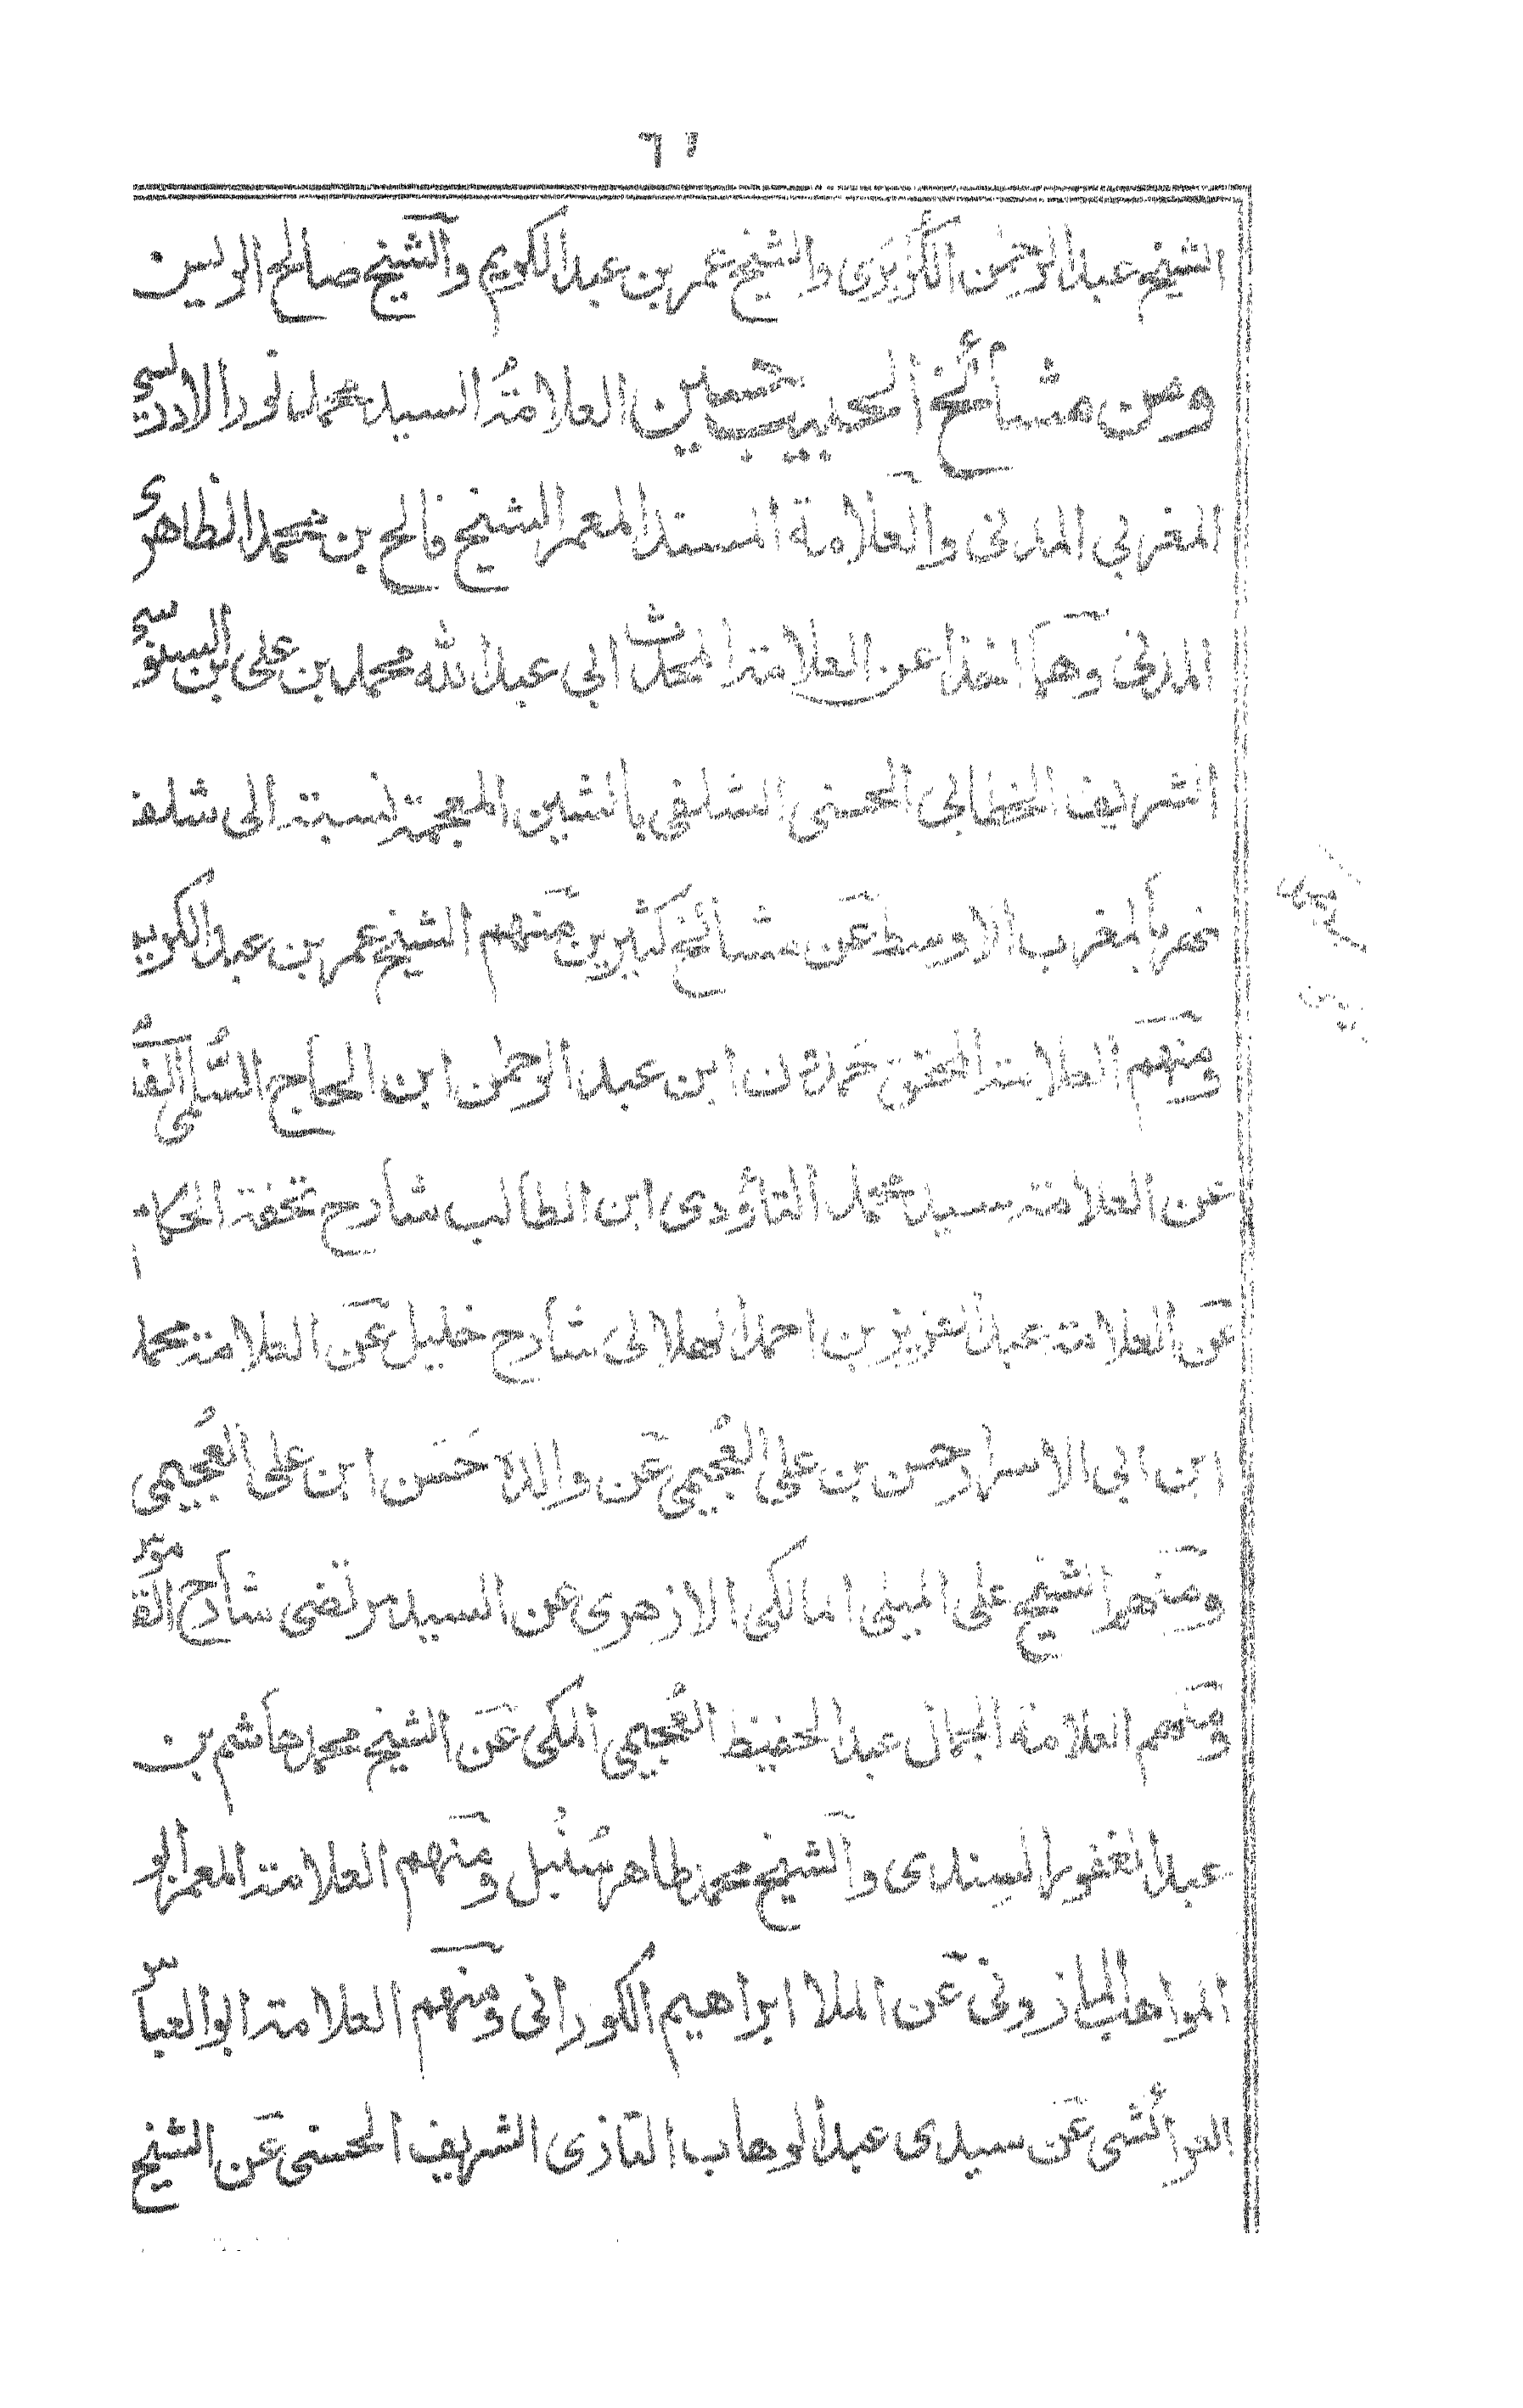 ٦١
الشيخ عبد الرحمٰن الكُزبَرى والشيخ عمر بن عبد الكريم والشيخ صالح الريس
ومن مشائخ الحبيب حسين العلامةُ السيد محمد نور الادريسى
المغربي المدنى والعلامة المسند المعمر الشيخ فالح بن محمد الظاهرى
المدنى وهما اخذا عن العلامة المحدث ابي عبد الله محمد بن على بن السنوسى
الشريف الخطابي الحسنى الشلفى بالشين المعجمة نسبة الى شلف
نهر بالمغرب الاوسط عن مشائخ كثيرين منهم الشيخ عمر بن عبد الكريم
ومنهم العلامة المحقق حمدون ابن عبد الرحمٰن ابن الحاج السُّلمى الفُ
عن العلامة سيد محمد التاؤدى ابن الطالب شارح تحفة الحكام
عن العلامة عبد العزيز بن احمد الهلالى شارح خليل عن العلامة محمد
ابن ابي الاسرار حسن بن على العُجيمى عن والده حَسَن ابن على العُجيمى
ومنهم الشيخ على الميلى المالكى الازهرى عن السيد مرتضى شارح القاموس
ومنهم العلامة الجمال عبد الحفيظ العُجيمى المكى عن الشيخ محمد هاشم بن
عبد الغفور السندى والشيخ محمد طاهر سُنْبل ومنهم العلامة المعمر ابو
المواهب المازونى عن الملا ابراهيم الكورانى ومنهم العلامة ابو العباس
العرائشى عن سيدى عبد الوهاب التازى الشريف الحسنى عن الشيخ